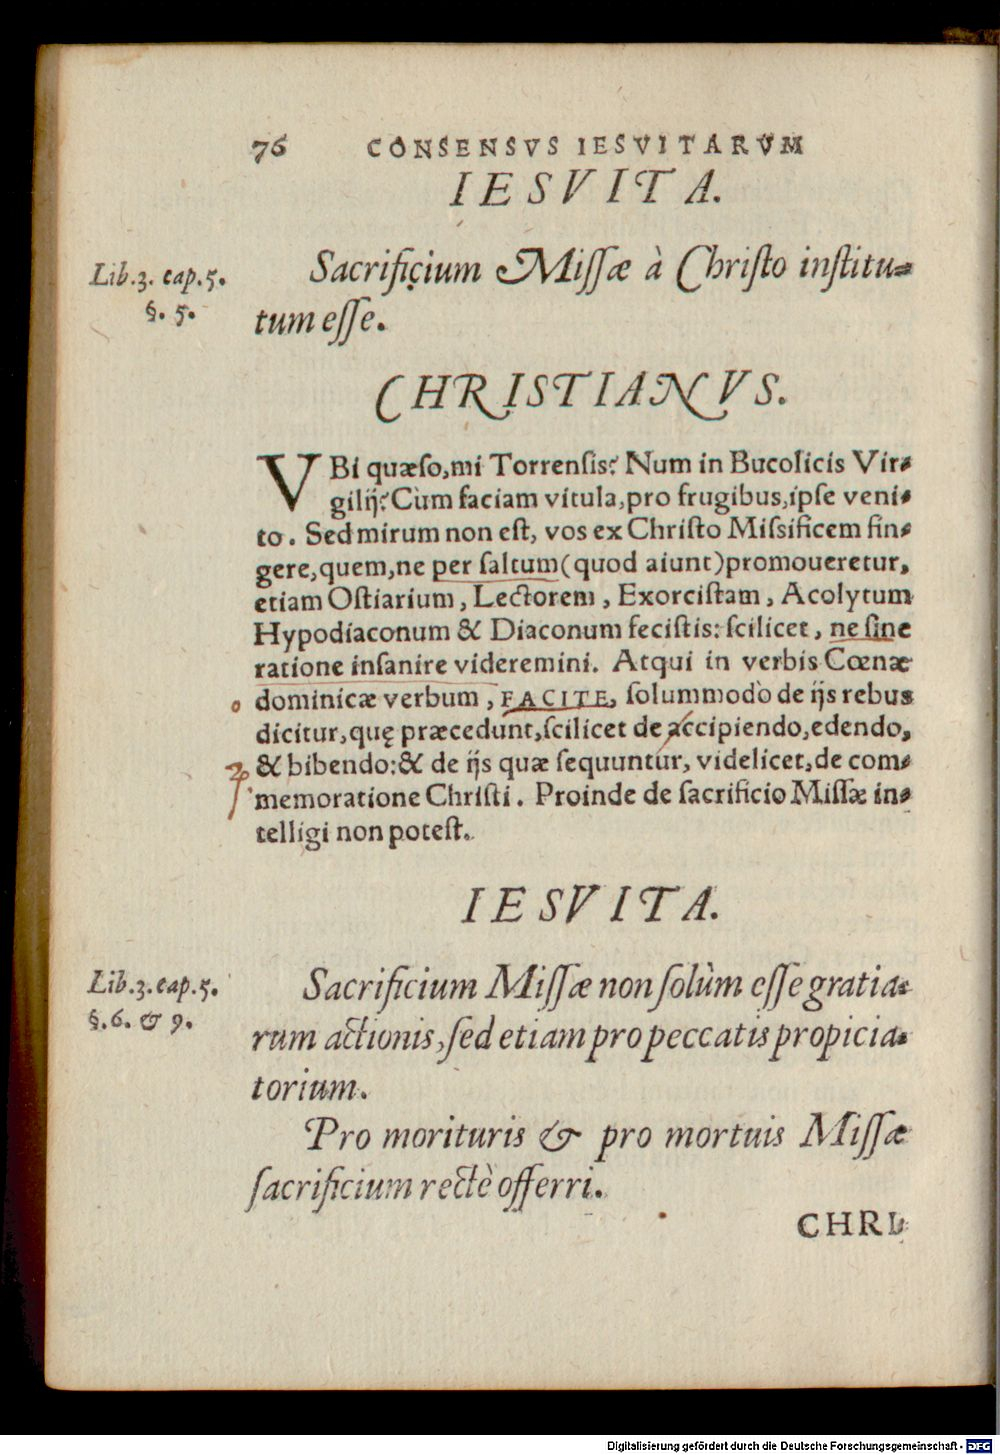 76 CONSENSVS IESVITARVM
IESVITA.
Lib.3. cap.5.
§. 5.
Sacrificium Missæ à Christo institu-
tum esse.
CHRISTIANVS.
VBi quæso, mi Torrensis? Num in Bucolicis Vir-
gilij? Cum faciam vitula, pro frugibus, ipse veni-
to. Sed mirum non est, vos ex Christo Missificem fin-
gere, quem, ne per saltum (quod aiunt) promoueretur,
etiam Ostiarium, Lectorem, Exorcistam, Acolytum
Hypodiaconum & Diaconum fecistis: scilicet, ne sine
ratione insanire videremini. Atqui in verbis Cœnæ
dominicæ verbum, FACITE, solummodò de ijs rebus
dicitur, quę præcedunt, scilicet de accipiendo, edendo,
& bibendo: & de ijs quæ sequuntur, videlicet, de com-
memoratione Christi. Proinde de sacrificio Missæ in-
telligi non potest.
IESVITA.
Lib.3. cap.5.
§.6. & 9.
Sacrificium Missæ non solùm esse gratia-
rum actionis, sed etiam pro peccatis propicia-
torium.
Pro morituris & pro mortuis Missæ
sacrificium rectè offerri.
CHRI-
Digitalisierung gefördert durch die Deutsche Forschungsgemeinschaft - DFG